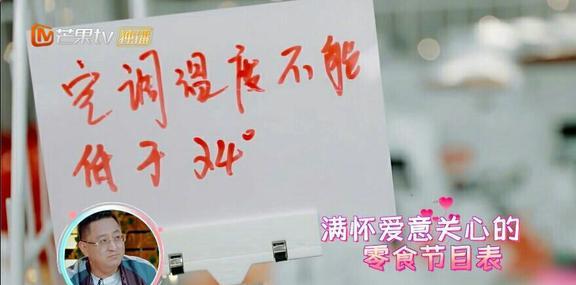 芒果tv 独播
空调温度不能
低于24°
满怀爱意关心的
零食节目表